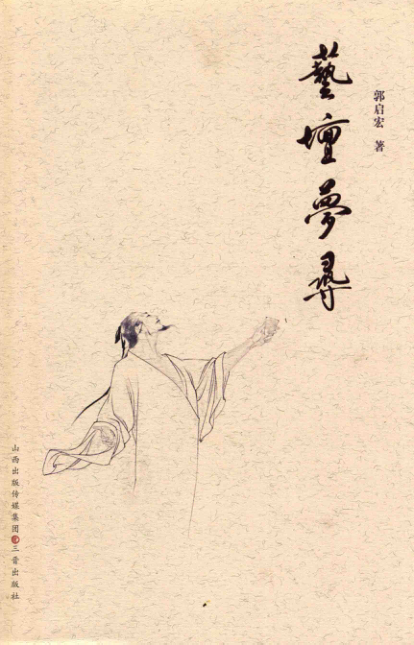 藝壇夢尋
郭启宏 著
山西出版传媒集团 三晋出版社